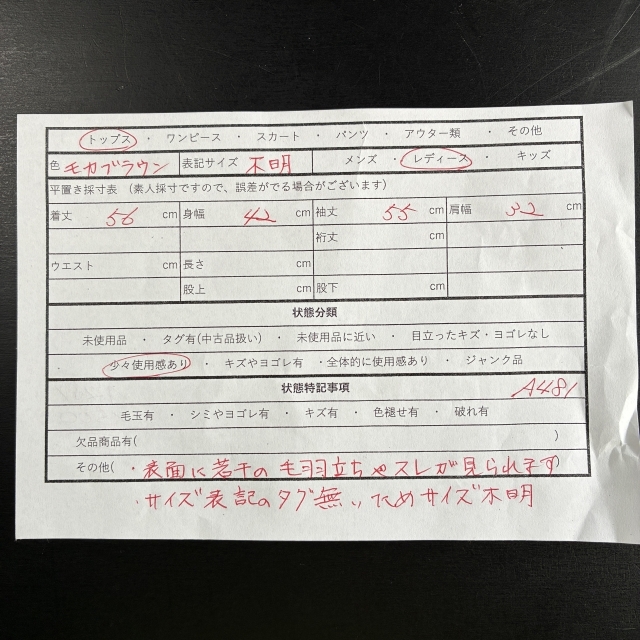 トップス ・ ワンピース ・ スカート ・ パンツ ・ アウター類 ・ その他
色 モカブラウン 表記サイズ 不明 メンズ ・ レディース ・ キッズ
平置き採寸表 (素人採寸ですので、誤差がでる場合がございます)
着丈 56 cm 身幅 42 cm 袖丈 55 cm 肩幅 32 cm
裄丈 cm
ウエスト cm 長さ cm
股上 cm 股下 cm
状態分類
未使用品 ・ タグ有(中古品扱い) ・ 未使用品に近い ・ 目立ったキズ・ヨゴレなし
少々使用感あり ・ キズやヨゴレ有 ・全体的に使用感あり ・ ジャンク品
状態特記事項 A481
毛玉有 ・ シミやヨゴレ有 ・ キズ有 ・ 色褪せ有 ・ 破れ有
欠品商品有( )
その他( ・表面に若干の毛羽立ちやスレが見られます
・サイズ表記のタグ無いためサイズ不明